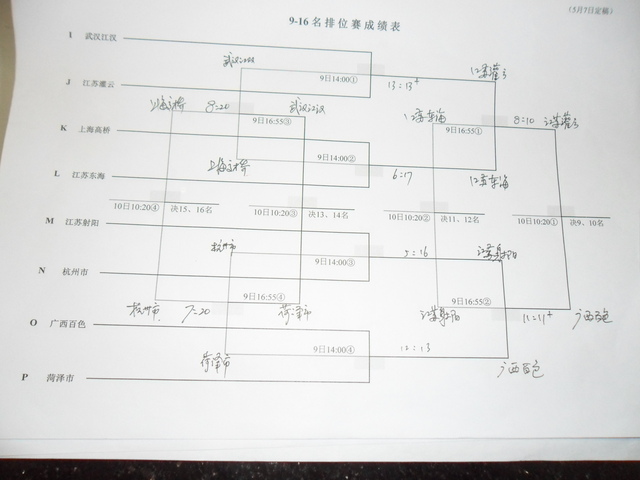 (5月7日定稿)
9-16名排位赛成绩表
I 武汉江汉
武汉江汉
江苏灌云
9日14:00①
13:13+
J 江苏灌云
上海高桥 8:20 武汉江汉
江苏东海 8:10 江苏灌云
9日16:55③
9日16:55①
K 上海高桥
9日14:00②
上海高桥
6:17
江苏东海
L 江苏东海
10日10:20④ 决15、16名
10日10:20③ 决13、14名
10日10:20② 决11、12名
10日10:20① 决9、10名
M 江苏射阳
杭州市
5:16
江苏射阳
9日14:00③
N 杭州市
9日16:55④
9日16:55②
杭州市 7:20 菏泽市
江苏射阳 11:11+ 广西百色
O 广西百色
9日14:00④
12:13
菏泽市
广西百色
P 菏泽市